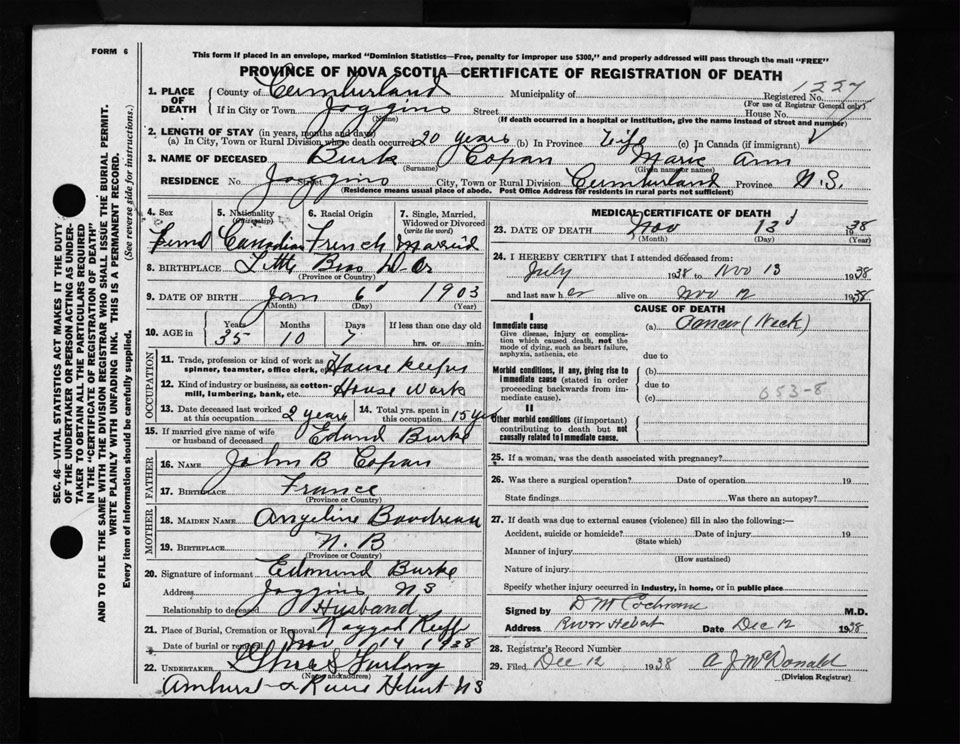 FORM 6
This form if placed in an envelope, marked "Dominion Statistics—Free, penalty for improper use $300," and properly addressed will pass through the mail "FREE"
PROVINCE OF NOVA SCOTIA—CERTIFICATE OF REGISTRATION OF DEATH
1. PLACE OF DEATH County of Cumberland Municipality of Registered No. 1227
(For use of Registrar General only)
If in City or Town Joggins Street House No.
(Name) (If death occurred in a hospital or institution, give the name instead of street and number)
2. LENGTH OF STAY (in years, months and days)
(a) In City, Town or Rural Division where death occurred 20 years (b) In Province Life (c) In Canada (if immigrant)
3. NAME OF DECEASED Burk Copan Marie Ann
(Surname) (Given name or names)
RESIDENCE No. Joggins Street City, Town or Rural Division Cumberland Province N.S.
(Residence means usual place of abode. Post Office Address for residents in rural parts not sufficient)
4. Sex 5. Nationality (Citizenship) 6. Racial Origin 7. Single, Married, Widowed or Divorced (write the word)
Canadian French
8. BIRTHPLACE Little Bras D Or
(Province or Country)
9. DATE OF BIRTH Jan 6 1903
(Month) (Day) (Year)
10. AGE in Years Months Days If less than one day old
35 10 7 hrs. or min.
OCCUPATION
11. Trade, profession or kind of work as spinner, teamster, office clerk, etc. House keeper
12. Kind of industry or business, as cotton-mill, lumbering, bank, etc. House Work
13. Date deceased last worked at this occupation 2 years 14. Total yrs. spent in this occupation 15 yrs
15. If married give name of wife or husband of deceased Edmund Burke
FATHER
16. NAME John B Copan
17. BIRTHPLACE France
(Province or Country)
MOTHER
18. MAIDEN NAME Angeline Boudreau
19. BIRTHPLACE N. B
(Province or Country)
20. Signature of informant Edmund Burke
Address Joggins N S
Relationship to deceased Husband
21. Place of Burial, Cremation or Removal Ragged Reef
Date of burial or removal Nov 14 1938
22. UNDERTAKER
(Name and address)
Amherst & River Hebert N S
MEDICAL CERTIFICATE OF DEATH
23. DATE OF DEATH Nov 13 1938
(Month) (Day) (Year)
24. I HEREBY CERTIFY that I attended deceased from:
July 1938 to Nov 13 1938
and last saw her alive on Nov 12 1938
CAUSE OF DEATH
I
Immediate cause (a) Cancer (Neck)
Give disease, injury or complication which caused death, not the mode of dying, such as heart failure, asphyxia, asthenia, etc
due to
Morbid conditions, if any, giving rise to immediate cause (stated in order proceeding backwards from immediate cause). (b)
due to
(c) 053-8
II
Other morbid conditions (if important) contributing to death but not causally related to immediate cause.
25. If a woman, was the death associated with pregnancy?
26. Was there a surgical operation? Date of operation 19
State findings Was there an autopsy?
27. If death was due to external causes (violence) fill in also the following:—
Accident, suicide or homicide? Date of injury 19
(State which)
Manner of injury
(How sustained)
Nature of injury
Specify whether injury occurred in industry, in home, or in public place
Signed by D M Cochrane M.D.
Address River Hebert Date Dec 12 1938
28. Registrar's Record Number
29. Filed Dec 12 1938 A J McDonald
(Division Registrar)
SEC. 46—VITAL STATISTICS ACT MAKES IT THE DUTY
OF THE UNDERTAKER OR PERSON ACTING AS UNDER-
TAKER TO OBTAIN ALL THE PARTICULARS REQUIRED
IN THE "CERTIFICATE OF REGISTRATION OF DEATH"
AND TO FILE THE SAME WITH THE DIVISION REGISTRAR WHO SHALL ISSUE THE BURIAL PERMIT.
WRITE PLAINLY WITH UNFADING INK. THIS IS A PERMANENT RECORD.
Every item of information should be carefully supplied. (See reverse side for instructions.)